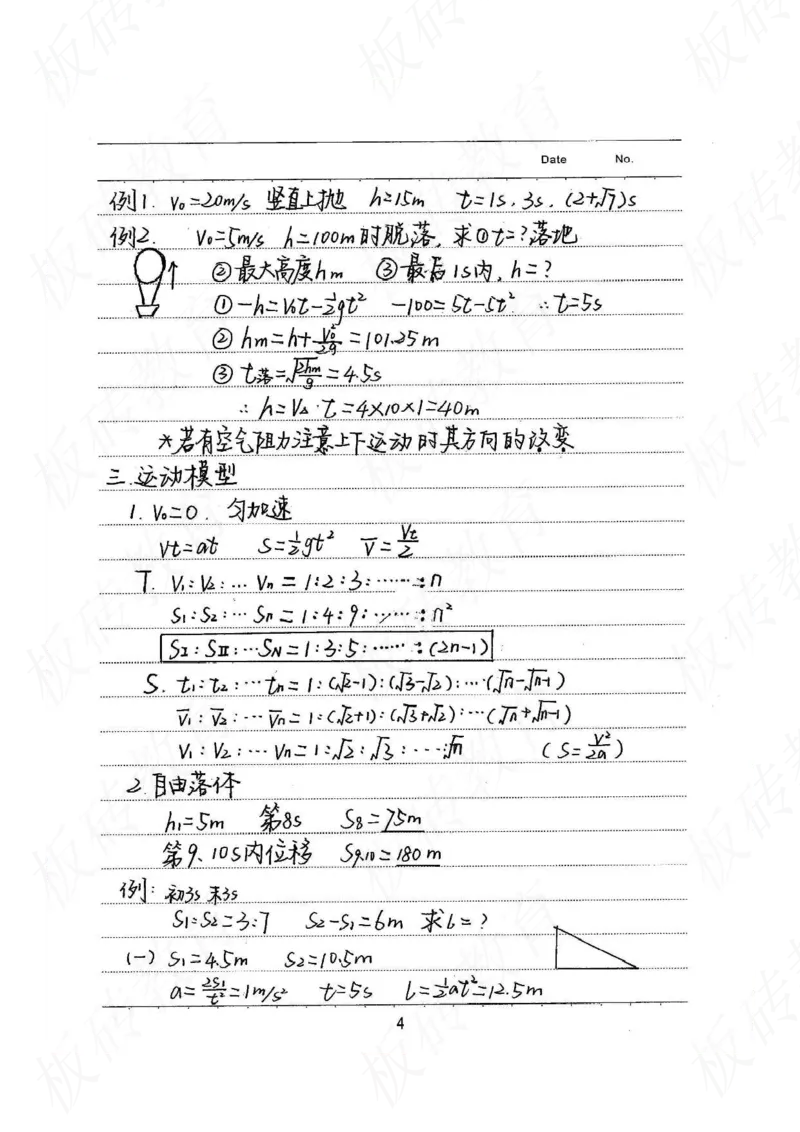 Date No.
例1. V₀=20m/s 竖直上抛 h=15m t=1s, 3s, (2+√7)s
例2. V₀=5m/s h=100m时脱落, 求①t=?落地
②最大高度hm ③最后1s内, h=?
① -h=V₀t-½gt² -100=5t-5t² ∴t=5s
② hm=h+V₀²/2g=101.25m
③ t落=√(2hm/g)=4.5s
∴ h=V△·t=4×10×1=40m
*若有空气阻力注意上下运动时其方向的改变
三.运动模型
1. V₀=0. 匀加速
Vt=at S=½gt² V̄=Vt/2
T. V₁:V₂:…Vn=1:2:3:……:n
S₁:S₂:…Sn=1:4:9:……:n²
SⅠ:SⅡ:…SN=1:3:5:……:(2n-1)
S. t₁:t₂:…tn=1:(√2-1):(√3-√2):…(√n-√n-1)
V̄₁:V̄₂:…V̄n=1:(√2+1):(√3+√2):…(√n+√n-1)
V₁:V₂:…Vn=1:√2:√3:…:√n (S=V²/2a)
2.自由落体
h₁=5m 第8s S₈=75m
第9、10s内位移 S₉,₁₀=180m
例: 初3s 末3s
S₁:S₂=3:7 S₂-S₁=6m 求L=?
(一) S₁=4.5m S₂=10.5m
a=2S₁/t²=1m/s² t=5s L=½at²=12.5m
4
板砖教育